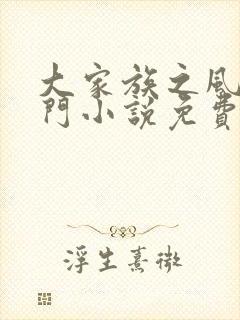 大家族之風
門小說免費
浮生熹微